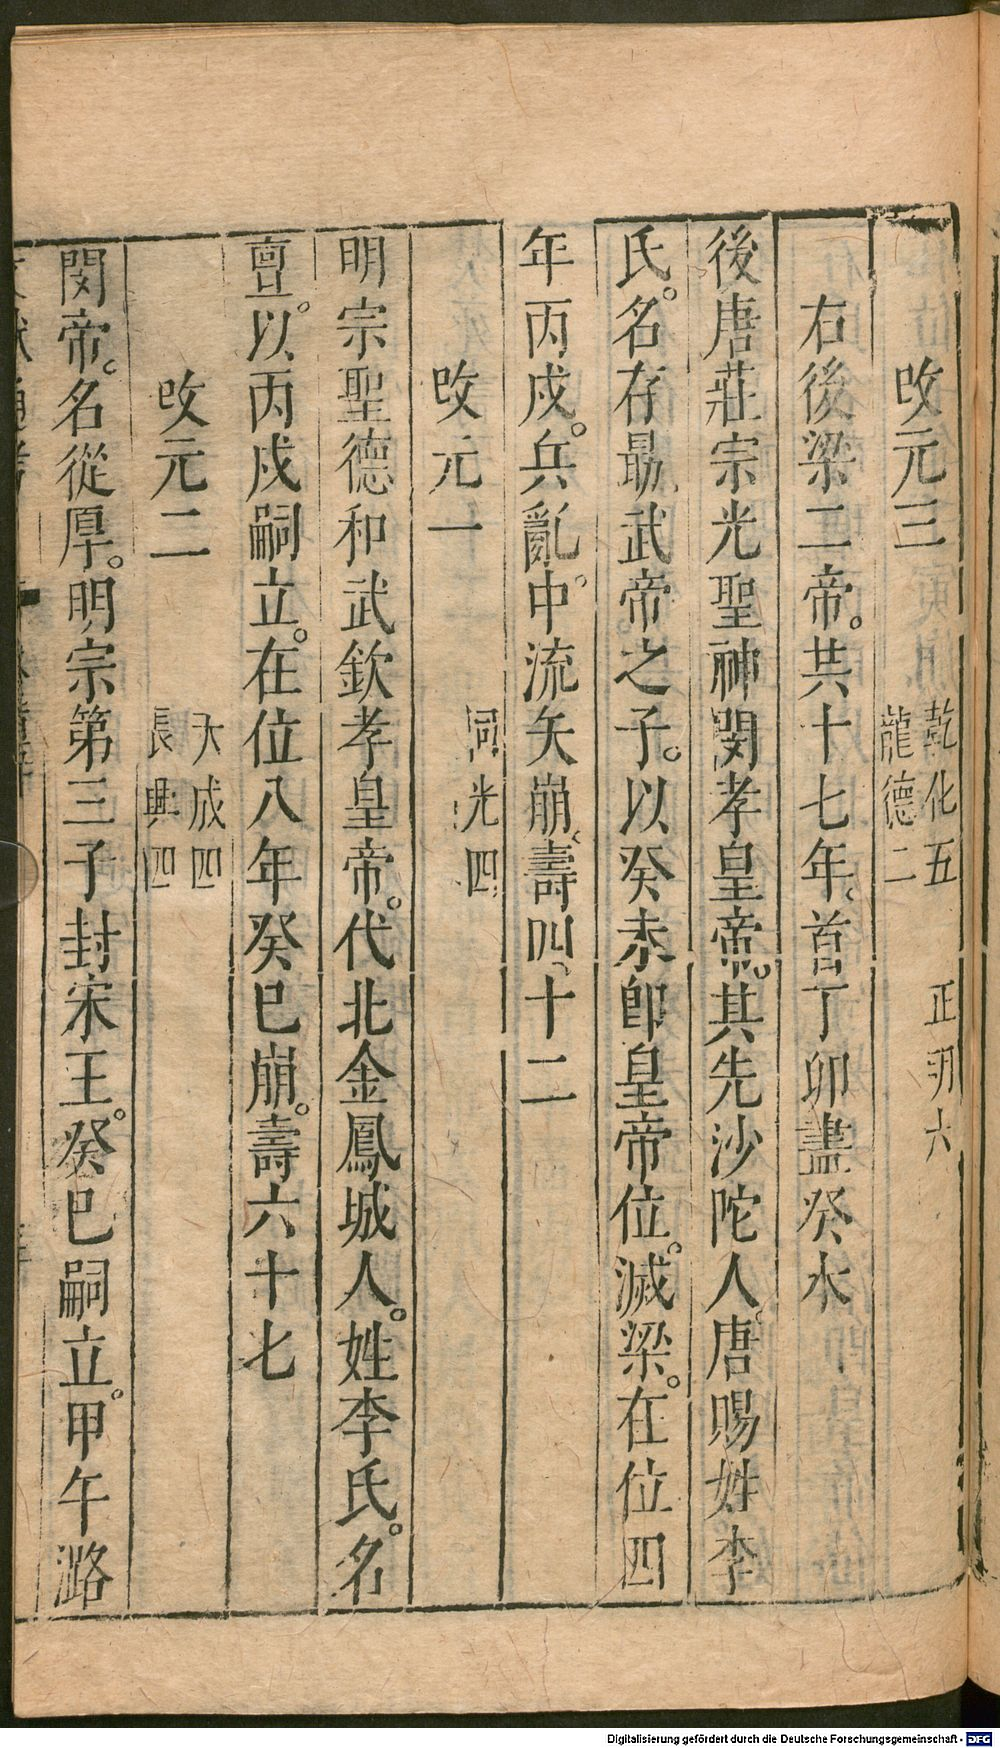 改元三 乾化五 正明六
龍德二
右後梁二帝。共十七年。首丁卯盡癸水
後唐莊宗光聖神閔孝皇帝。其先沙陀人。唐賜姓李
氏。名存勗武帝之子。以癸未卽皇帝位。滅梁。在位四
年丙戌。兵亂中。流矢崩。壽四十二
改元一 同光四
明宗聖德和武欽孝皇帝。代北金鳳城人。姓李氏。名
亶。以丙戌嗣立。在位八年癸巳崩。壽六十七
改元二 天成四
長興四
閔帝。名從厚。明宗第三子封宋王。癸巳嗣立。甲午潞
Digitalisierung gefördert durch die Deutsche Forschungsgemeinschaft - DFG